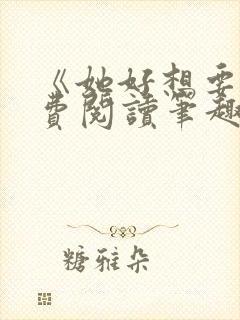 《她好想要
費閱讀筆趣
糖雅朵